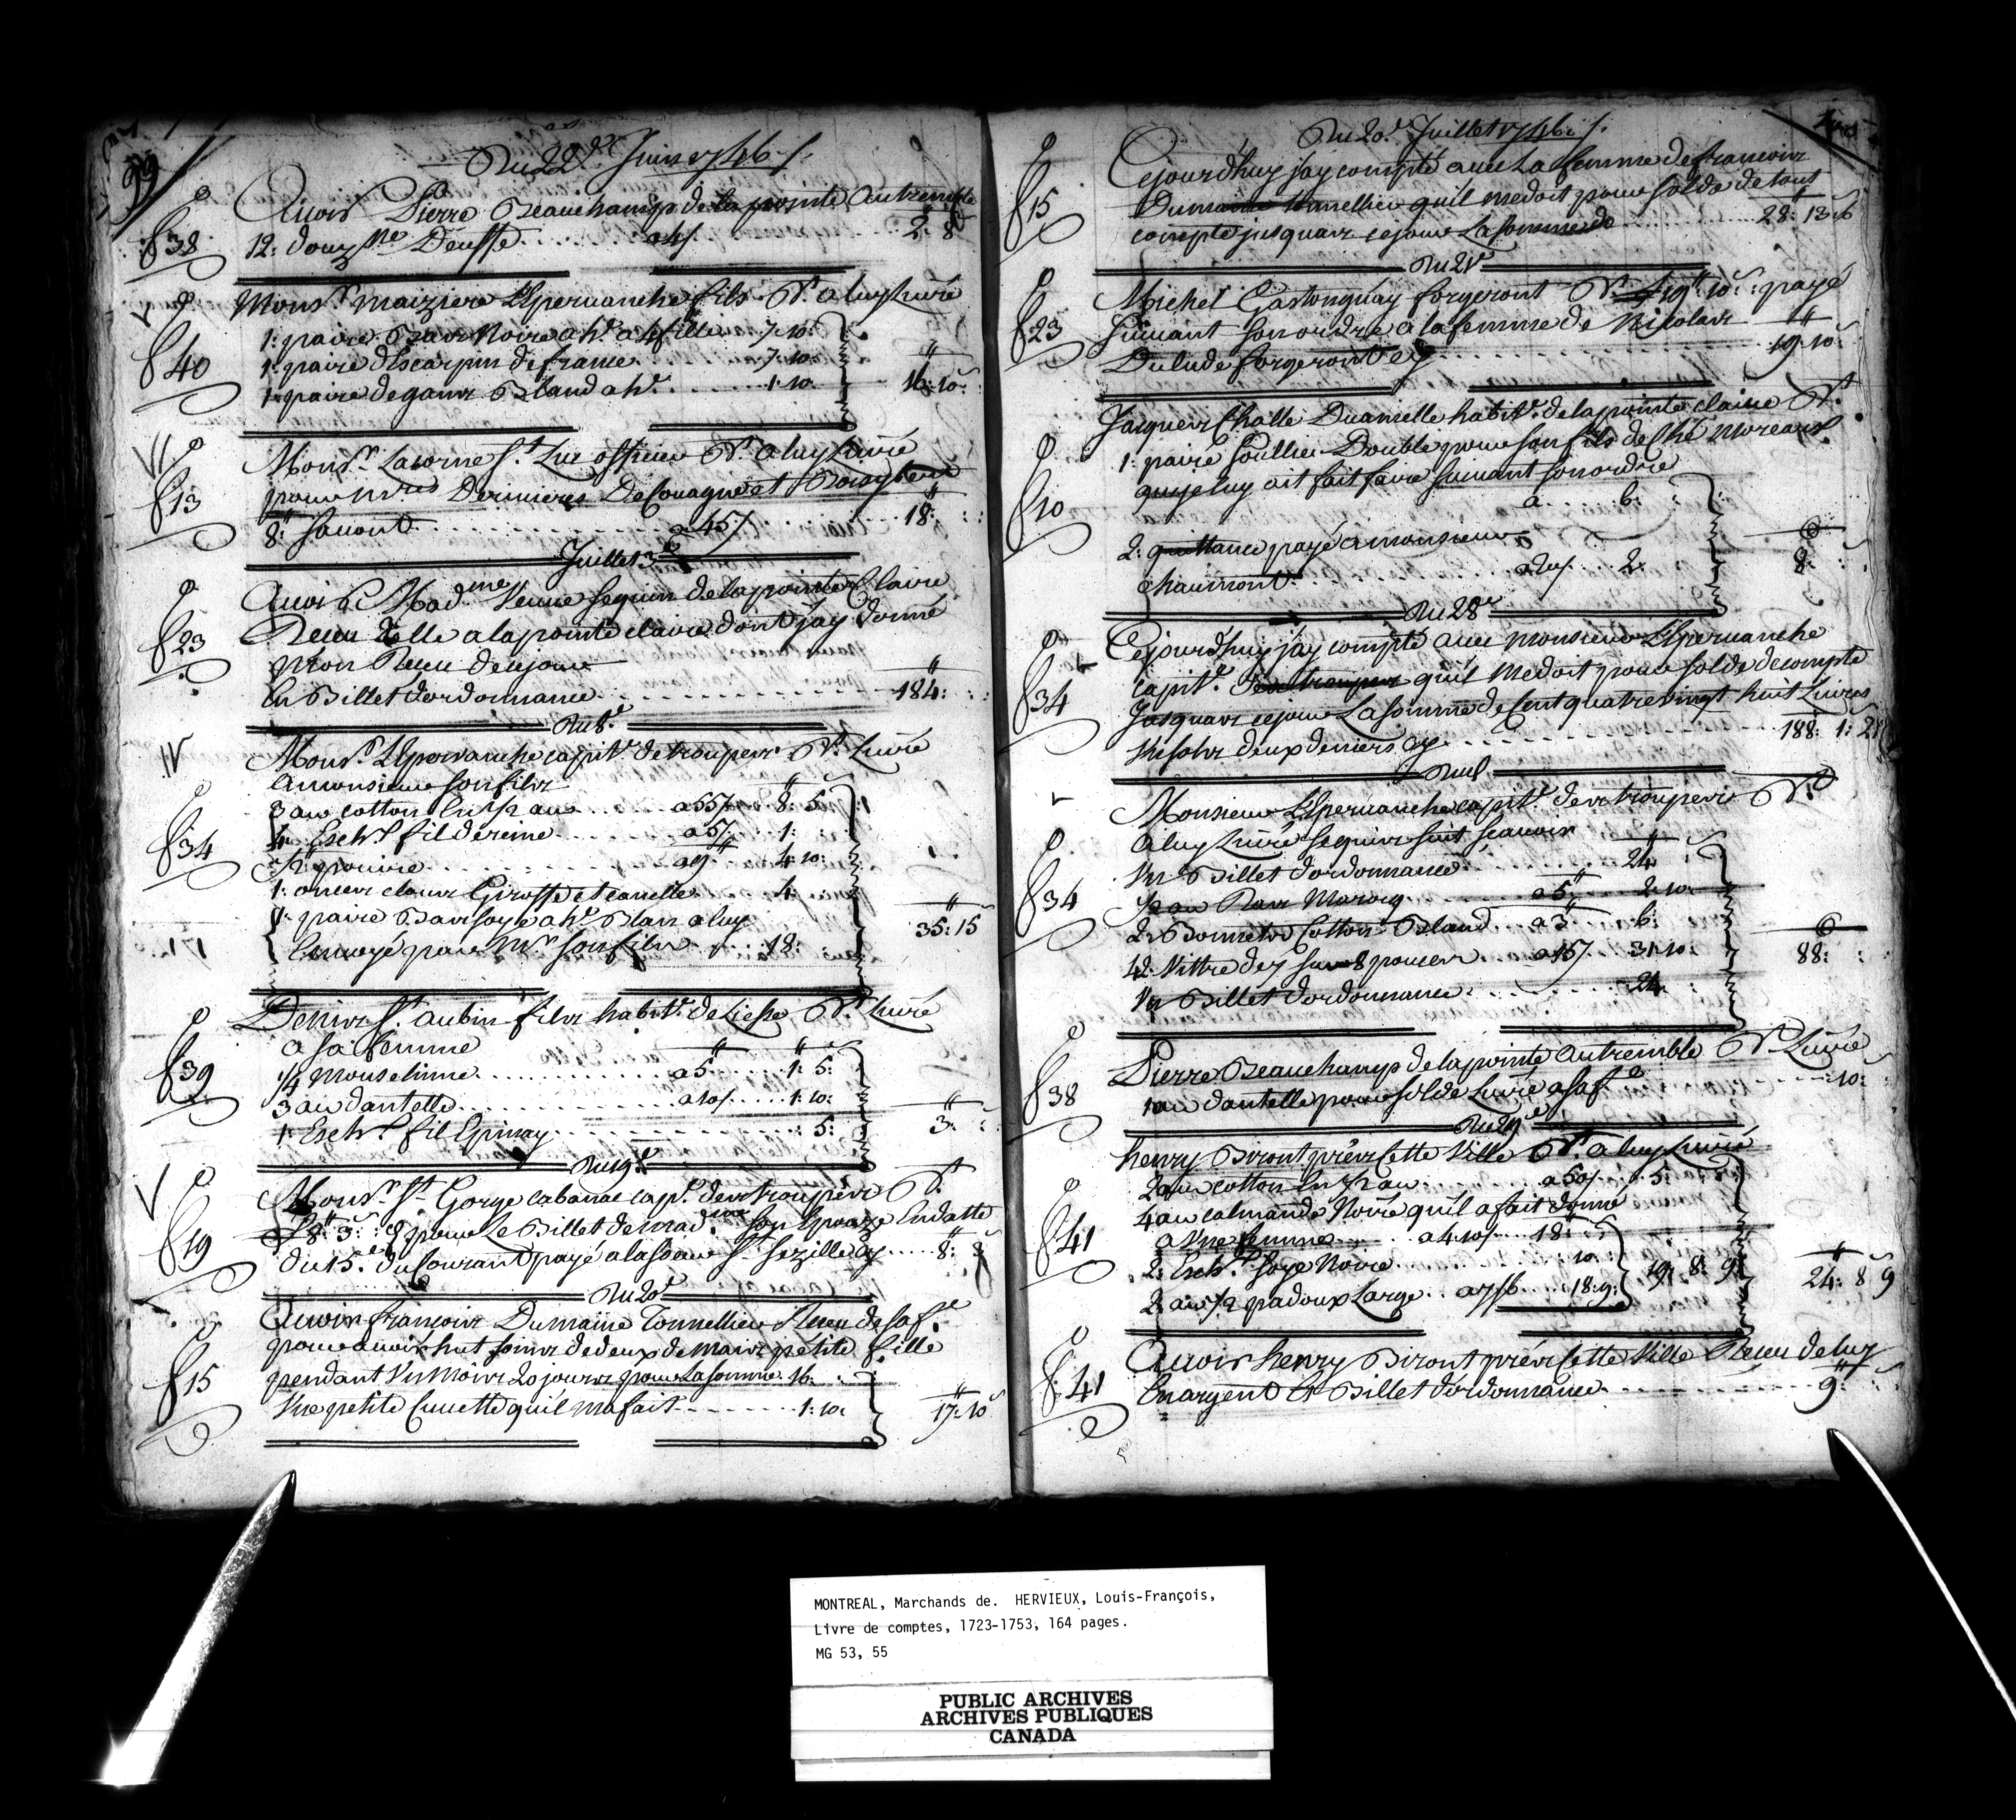 99
Du 22e Juin 1746 /.
Avoir Pierre Beauchamp de la pointe Autremble
f 38 12: douzne Deuffe a 4s 2: 8
Monsr maiziere LEpervanche fils Dt a luy Livré
1: paire Bas Noire a he a 4 fille 7: 10:
f 40 1: paire d'Escarpin de france 7: 10:
1: paire de gans Bland a he 1: 10 16: 10:
Monsr Lacorne St Luc officier Dt a luy Livré
f 13 pour mrs Dermieres De Couagne et
8: Savont a 45s 18:
Juillet 3e
Avoir Madme Veuve Seguin de la pointe Claire
f 23 Receu d'Elle a la pointe claire dont jay donné
mon Receu de ce jour
En Billet dordonnance 184:
Du 8e
Monsr LEpervanche capitne de troupes Dt Livré
a monsieur son fils
3 au cotton En 1/2 au a 55s 8: 5
f 34 4 Eschts fil de reine a 5s 1:
1/2 poivre a 9 4: 10:
1: onces clous Giroffe et canelle 4:
1: paire Bas soye a he Blan a luy
Envoyé par Mr son fils 18: 35: 15
Denis St aubin fils habitt de Liesse Dt Livré
a sa femme
f 39 1/4 Mouselinne a 5 1: 5:
3 au dantelle a 10s 1: 10:
1 Escht fil Epinay 5: 3:
Du 19e
Monsr St Gorge Cabanac capt des troupes Dt
8: 3: 9 pour Le Billet de madme son Epouze En datte
f 19 du 15e du Courant payé a la soeur St Sezille cy 8: 8
Du 20e
Avoir francois Dumaine Tonnellier Receu de sa fe
pour avoir hut soins de deux de mais petite fille
f 15 pendant Un mois 20 jours pour La somme 16:
Une petite Cuvette quil ma fait 1: 10: 17: 10
Du 20e Juillet 1746 /.
Cejourdhuy jay compté avec La femme de francois
f 15 Dumaine tonnellier quil me doit pour solde de tout
compte jusquas ce jour La somme de 28: 13: 6
Du 21e
Michel Gastonguay forgeront Dt 19: 10: payé
f 23 Suivant son ordre a la femme de Nicolas
Dulude forgeront cy 19: 10:
Jacques Challe Duamelle habitt de la pointe claire Dt
1: paire Soullier Double pour son fils de Ché Moreau
f 10 que je luy ait fait faire Suivant son ordre
a 6:
2: quittance payé a monsieur
Chaumont a 20s 2: 8:
Du 28e
Cejourdhuy jay compté avec Monsieur LEpervanche
capitne des troupes quil me doit pour solde de compte
f 34 Jusquas ce jour La somme de Cent quatre vingt huit Livres
Un sols deux deniers cy 188: 1: 2
Monsieur LEpervanche capitne des troupes Dt
a luy Livré ce qui suit scavoir
Un Billet dordonnance 24
f 34 1/2 au Ras Maroc a 5 2: 10:
2: Bonnets Cotton Bland a 3 6:
42: Vittre de 7 sur 8 pouces a 15s 31: 10: 88:
Un Billet dordonnance 24
Pierre Beauchamp de la pointe Autremble Dt Livré
f 38 1 au dantelle pour solde Livré a sa fe 10:
Du 29e
henry Biront près Cette Ville Dt a luy Livré
2 au cotton En 1/2 au a 50s 5:
4 au calmande Noire quil a fait donné
f 41 a Une femme a 4: 10s 18:
2: Eschts soye Noire 10
2 au 1/2 padoux Large a 7s6 18: 9: 19: 8: 9 24: 8 9
Avoir henry Biront près Cette Ville Receu de luy
f 41 En argent Et Billet dordonnance 9:
MONTREAL, Marchands de. HERVIEUX, Louis-François,
Livre de comptes, 1723-1753, 164 pages.
MG 53, 55
PUBLIC ARCHIVES
ARCHIVES PUBLIQUES
CANADA